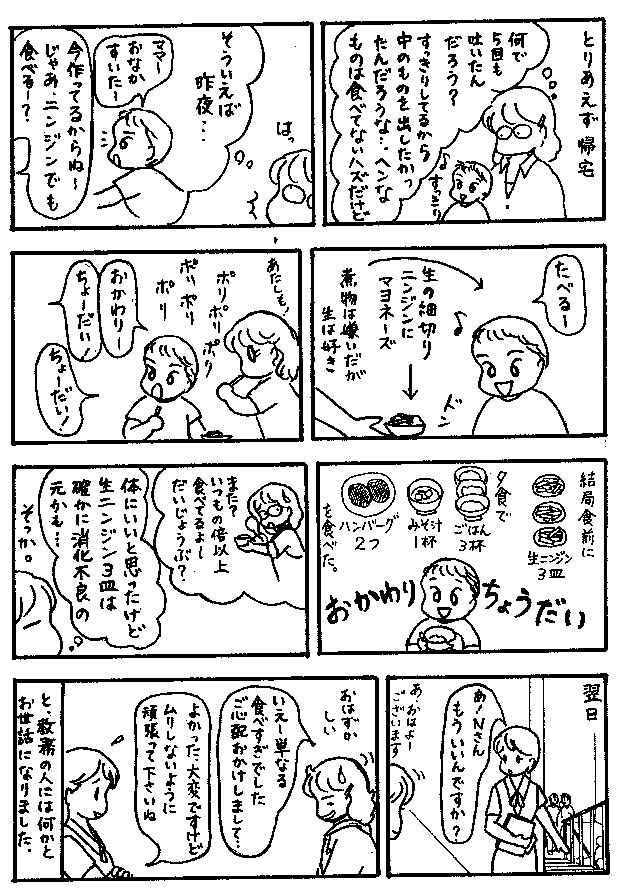 とりあえず帰宅
何で
5回も
吐いたん
だろう?
すっきりしてるから
中のものを出したかっ
たんだろうな…ヘンな
ものは食べてないハズだけど
すっきり
はっ
そういえば
昨夜…
ママー
おなか
すいたー
今作ってるからね~
じゃあ、ニンジンでも
食べる~?
たべるー
生の細切り
ニンジンに
マヨネーズ
煮物は嫌いだが
生は好き
ドン
あたしも!
ポリポリ
ポリ
ポリポリ
ポリ
おかわりー
ちょーだい!
ちょーだい!
結局食前に
生ニンジン
3皿
夕食で
ごはん
3杯
みそ汁
1杯
ハンバーグ
2つ
を食べた。
おかわり ちょうだい
また?
いつもの倍以上
食べてるよー
だいじょうぶ?
体にいいと思ったけど
生ニンジン3皿は
確かに消化不良の
元かも…
そっか。
翌日
あ!Nさん
もういいんですか?
あ、おはよー
ございます
おはずか
しい
いえー単なる
食べすぎでした
ご心配おかけしまして…
よかった、大変ですけど
ムリしないように
頑張って下さいね
と、教務の人には何かと
お世話になりました。